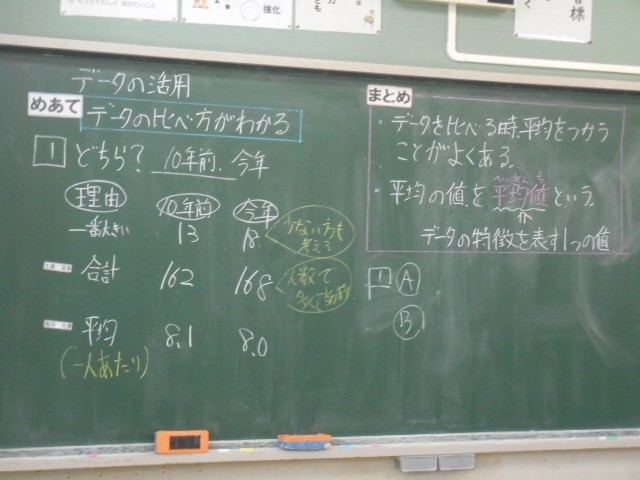 強化
データの活用
めあて
データの比べ方がわかる
1 どちら? 10年前. 今年
理由 10年前 今年
一番大きい 13 18.
少ない方も
考える
合計 162 168
人数で
平均 8.1 8.0
(一人あたり)
まとめ
・データを比べる時、平均をつかう
ことがよくある。
・平均の値を平均値という。
へいきんち
データの特徴を表す1つの値
1 A
B